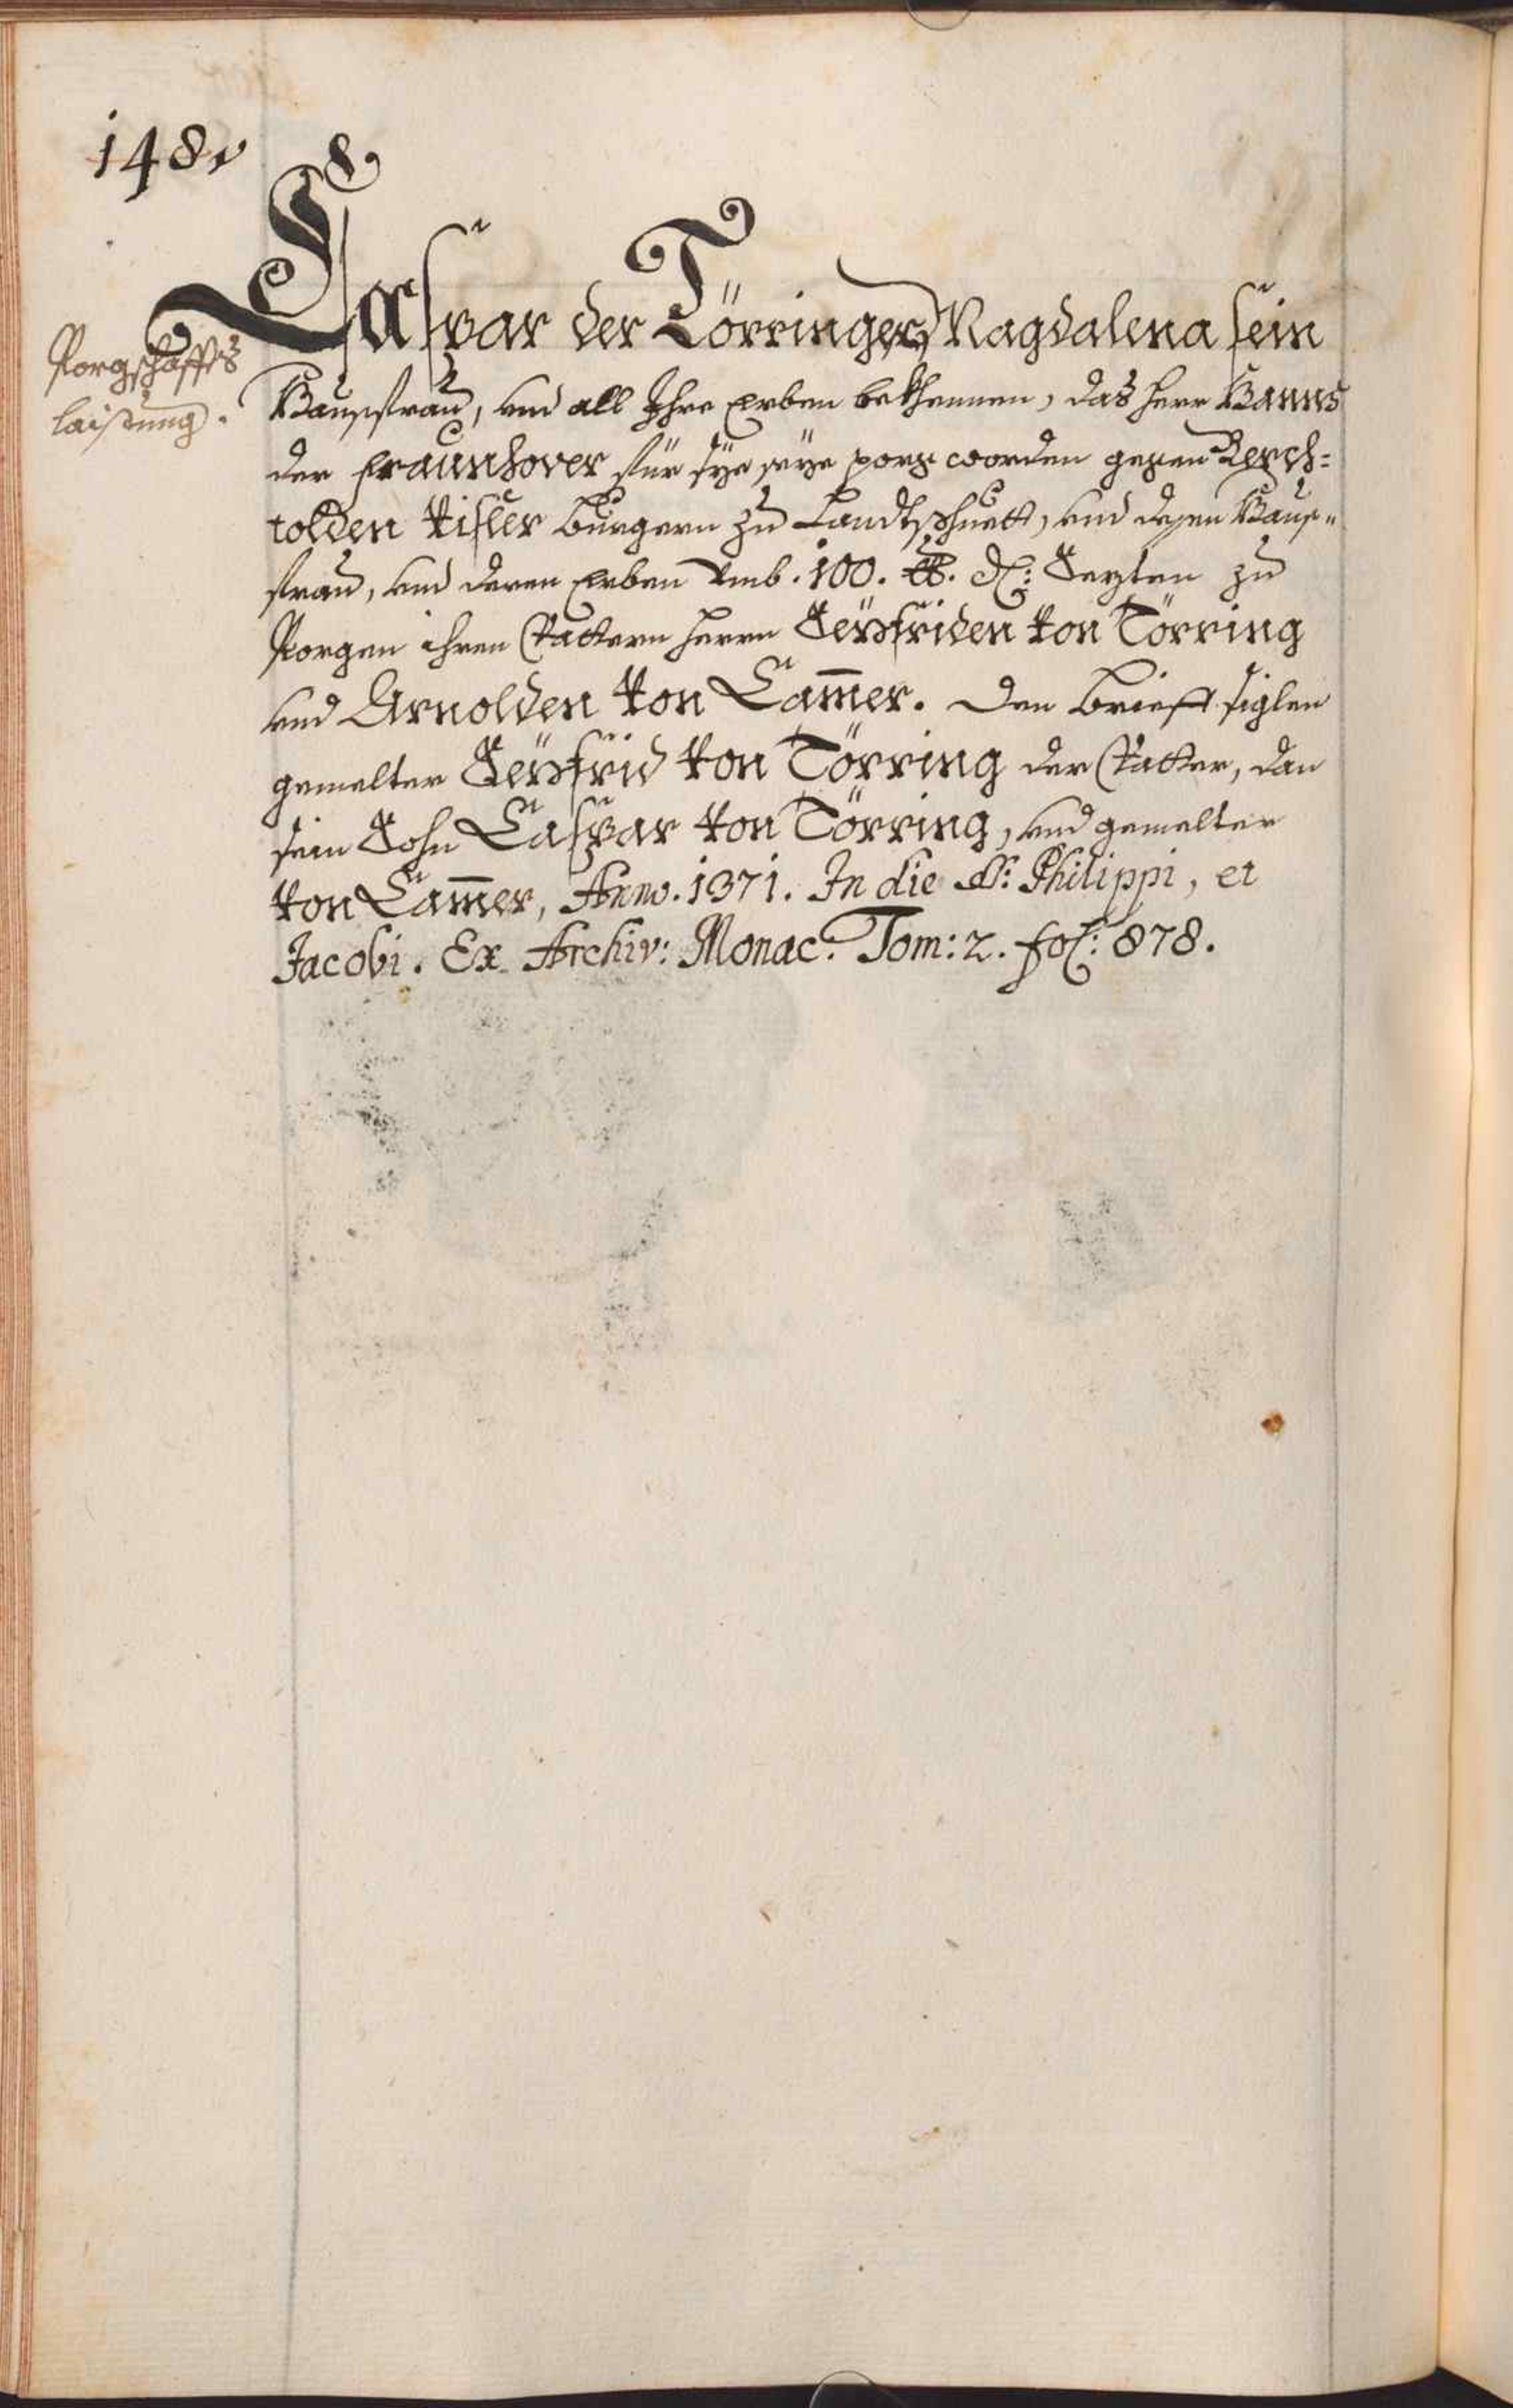 148v
Porgschaffts
laistung.
Caspar der Törringer, Magdalena sein
Hausfrau, und all Ihre Erben bekhennen, das herr Hanns
der Fraunhover für sye seye porg worden gegen Berch=
tolden Visler Burgern zu Landtshuett, und dessen Haus„
frau, und deren Erben Umb. 100. ℔. d: Sezten zu
Porgen ihren Vattern herrn Seyfriden Von Törring
und Arnolden Von Cam̅er. Den brieff siglen
gemelter Seyfrid Von Törring der Vatter, dan
sein Sohn Caspar Von Törring, und gemelter
Von Cam̅er, Anno. 1371. In die SS: Philippi, et
Jacobi. Ex Archiv: Monac: Tom: 2. fol: 878.